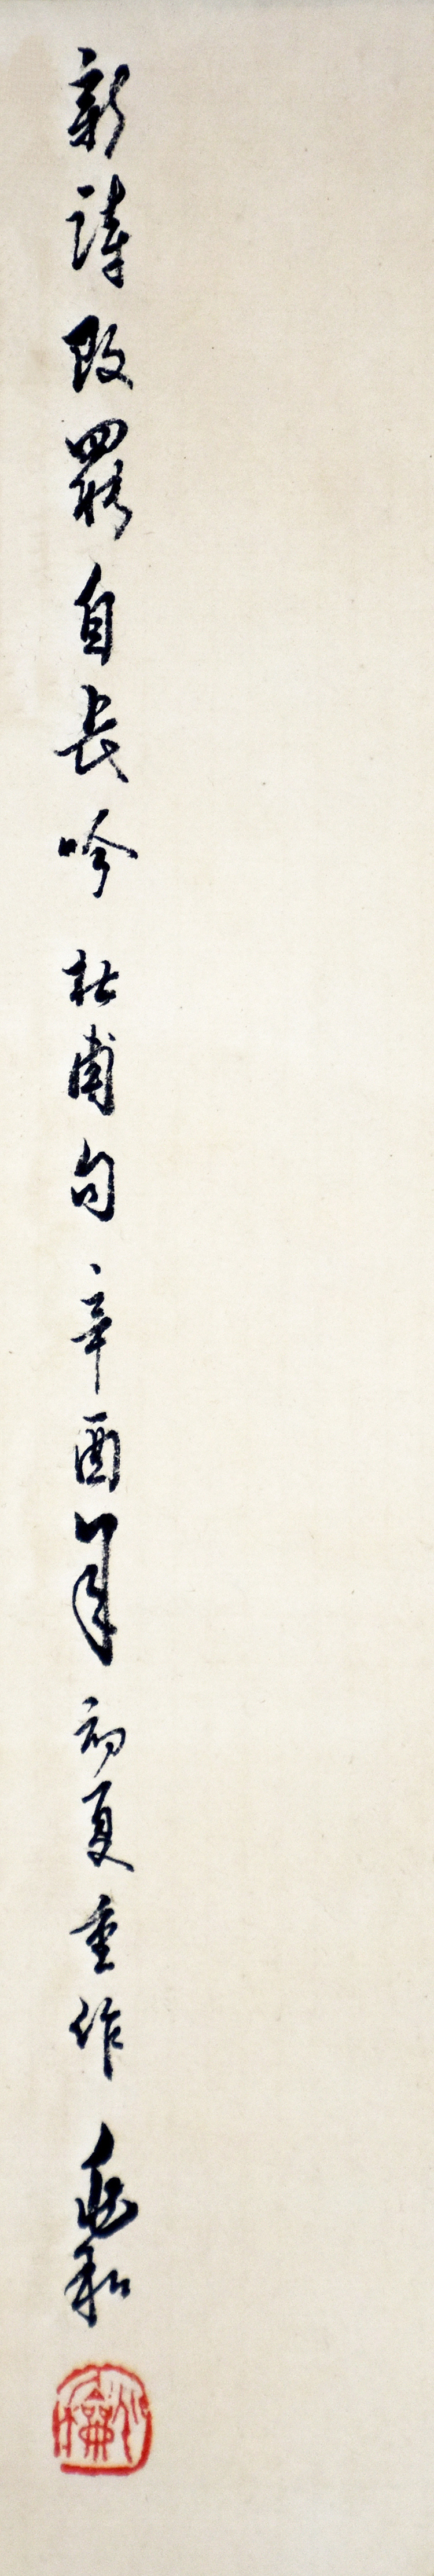 新詩改罷自長吟 杜甫句 辛酉年初夏重作 兆和